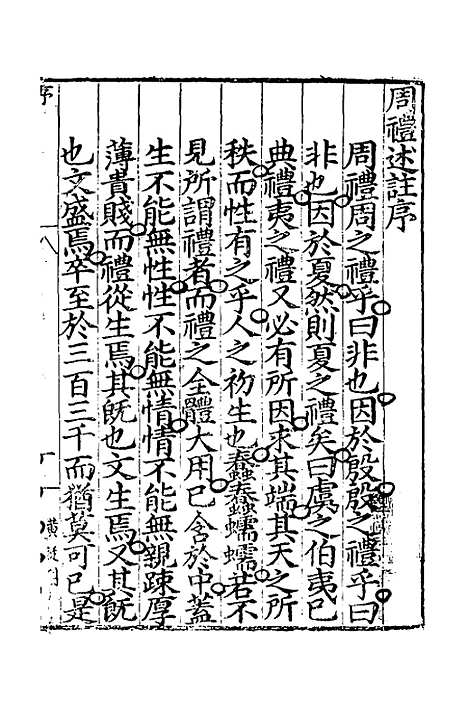 周禮述註序
周禮周之禮乎曰非也因於殷殷之禮乎曰
非也因於夏然則夏之禮矣曰虞之伯夷已
典禮夷之禮又必有所因求其端其天之所
秩而性有之乎人之初生也蠢蠢蠕蠕若不
見所謂禮者而禮之全體大用已含於中蓋
生不能無性性不能無情情不能無親踈厚
薄貴賤而禮從生焉其既也文生焉又其既
也文盛焉卒至於三百三千而猶莫可已是
序
八
黃